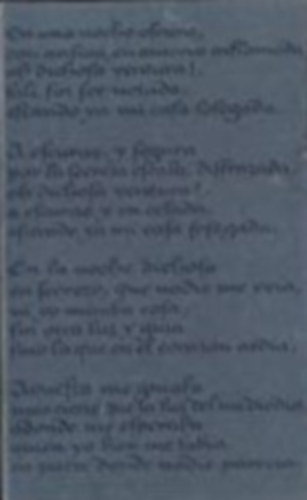 En una noche oscura,
con ansias, en amores inflamada
oh dichosa ventura!,
salí sin ser notada,
estando ya mi casa sosegada.
A oscuras, y segura
por la secreta escala, disfrazada,
oh dichosa ventura!,
a oscuras y en celada,
estando ya mi casa sosegada.
En la noche dichosa
en secreto, que nadie me veía,
ni yo miraba cosa,
sin otra luz y guía
sino la que en el corazón ardía.
Aquesta me guiaba
más cierto que la luz del mediodía
adonde me esperaba
quien yo bien me sabía
en parte donde nadie parecía.